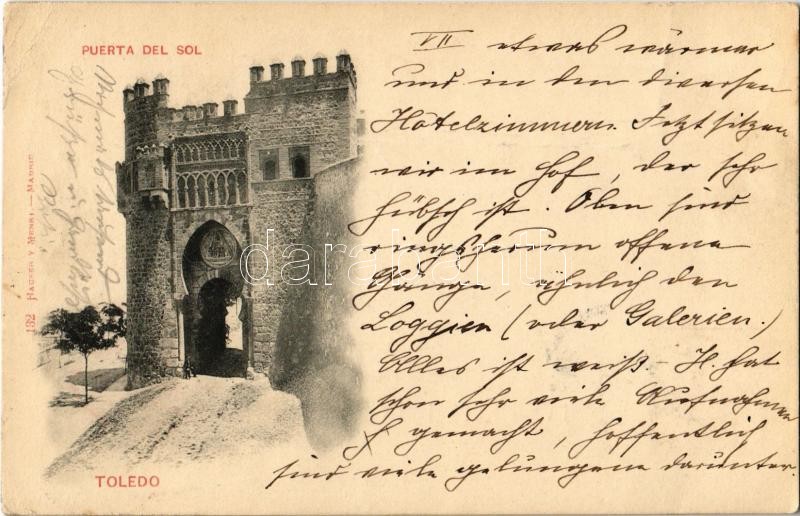 PUERTA DEL SOL
VII etwas wärmer
und in den diversen
Hôtelzimmern. Jetzt sitzen
wir im Hof, der sehr
hübsch ist. Oben sind
ringsherum offene
Gänge, ähnlich den
Loggien (oder Galerien.)
Alles ist weiß – H. hat
schon sehr viele Aufnahmen
gemacht, hoffentlich
sind viele gelungene darunter.
132 HAUSER Y MENET. — MADRID
TOLEDO
darabanth